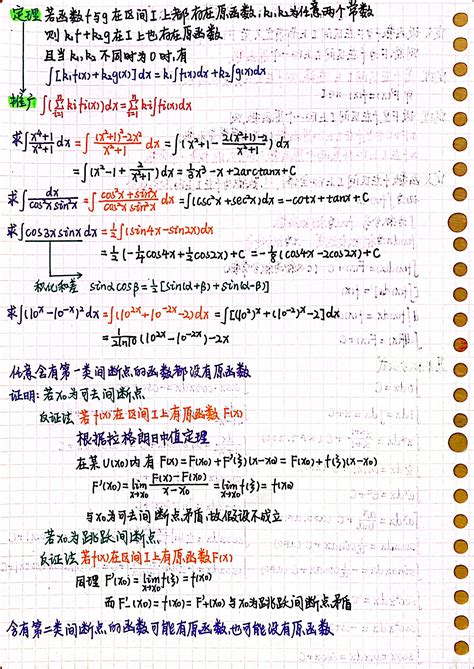 定理 若函数f与g在区间I上都存在原函数,k₁,k₂为任意两个常数
则k₁f+k₂g在I上也存在原函数
且当k₁,k₂不同时为0时,有
∫[k₁f(x)+k₂g(x)]dx=k₁∫f(x)dx+k₂∫g(x)dx
推广 ∫(∑ⁿᵢ₌₁kᵢfᵢ(x))dx=∑ⁿᵢ₌₁kᵢ∫fᵢ(x)dx
求∫(x⁴+1)/(x²+1)dx=∫((x²+1)²-2x²)/(x²+1)dx=∫(x²+1-(2(x²+1)-2)/(x²+1))dx
=∫(x²-1+2/(x²+1))dx=⅓x³-x+2arctanx+C
求∫dx/(cos²xsin²x)=∫(cos²x+sin²x)/(cos²xsin²x)dx=∫(csc²x+sec²x)dx=-cotx+tanx+C
求∫cos3xsinxdx=½∫(sin4x-sin2x)dx
=½(-¼cos4x+½cos2x)+C=-⅛(cos4x-2cos2x)+C
积化和差 sinαcosβ=½[sin(α+β)+sin(α-β)]
求∫(10ˣ-10⁻ˣ)²dx=∫(10²ˣ+10⁻²ˣ-2)dx=∫[(10²)ˣ+(10⁻²)ˣ-2]dx
=1/(2ln10)(10²ˣ-10⁻²ˣ)-2x
任意含有第一类间断点的函数都没有原函数
证明:若x₀为可去间断点
反证法 若f(x)在区间I上有原函数F(x)
根据拉格朗日中值定理
在某U(x₀)内有 F(x)=F(x₀)+F'(ξ)(x-x₀)=F(x₀)+f(ξ)(x-x₀)
F'(x₀)=lim x→x₀ (F(x)-F(x₀))/(x-x₀)=lim x→x₀ f(ξ)=f(x₀)
与x₀为可去间断点矛盾,故假设不成立
若x₀为跳跃间断点
反证法 若f(x)在区间I上有原函数F(x)
同理 F'(x₀)=lim x→x₀ f(ξ)=f(x₀)
而F'₋(x₀)=f(x₀)=F'₊(x₀)与x₀为跳跃间断点矛盾
含有第二类间断点的函数可能有原函数,也可能没有原函数